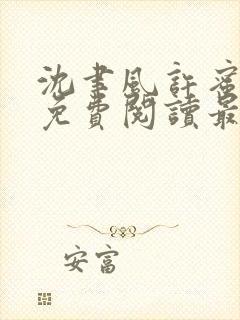 沈聿風許蜜
免費閱讀最
安富